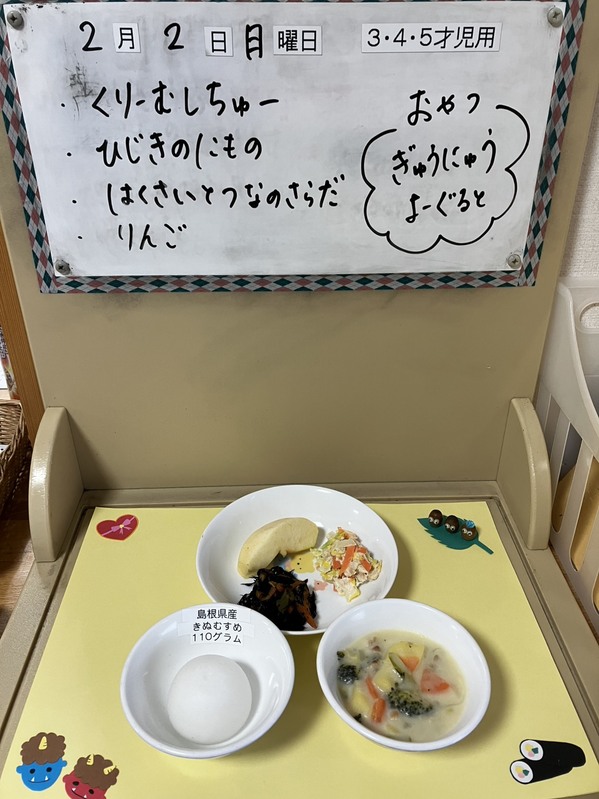 2月2日月曜日 3・4・5才児用
・くりーむしちゅー
・ひじきのにもの
・はくさいとつなのさらだ
・りんご
おやつ
ぎゅうにゅう
よーぐると
島根県産
きぬむすめ
110グラム